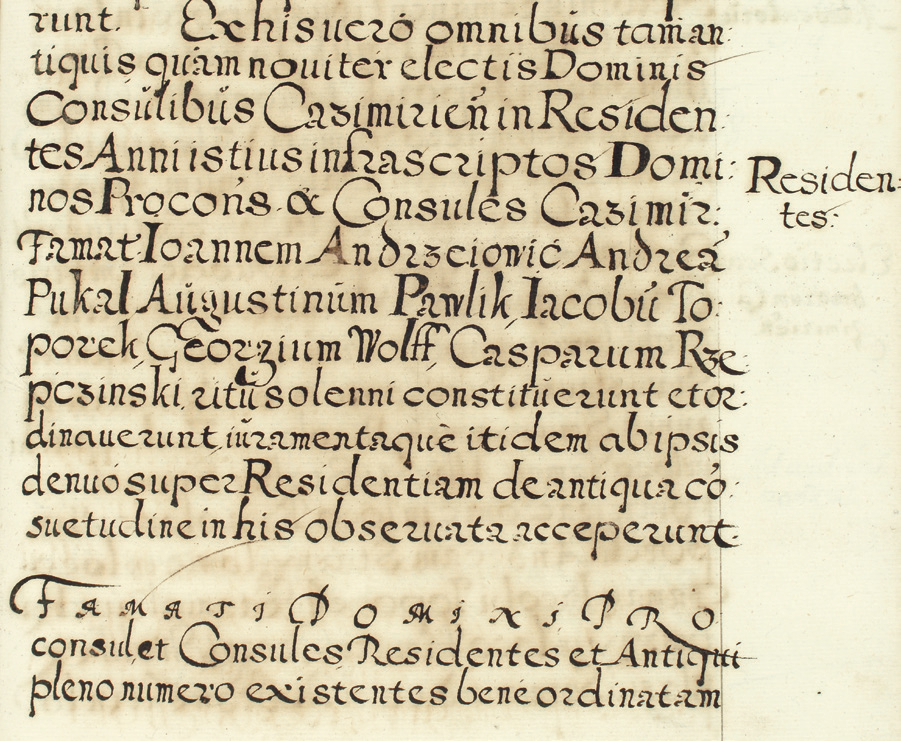 runt. Ex his uero omnibus tam an:
tiquis quam nouiter electis Dominis
Consulibus Cazimirien̄ in Residen
tes Anni istius infrascriptos Domi:
nos Procons. & Consules Cazimir:
Residen:
tes:
Famat: Ioannem Andrzeiowic Andreā
Pukal Augustinum Pawlik Iacobū To:
porek, Georgium Wolff, Casparum Rze:
pczinski, ritu solenni constituerunt et or:
dinauerunt, iuramentaque itidem ab ipsis
denuo super Residentiam de antiqua cō:
suetudine in his obseruata acceperunt.
FAMATI DOMINI PRO
consul et Consules Residentes et Antiqui
pleno numero existentes bene ordinatam